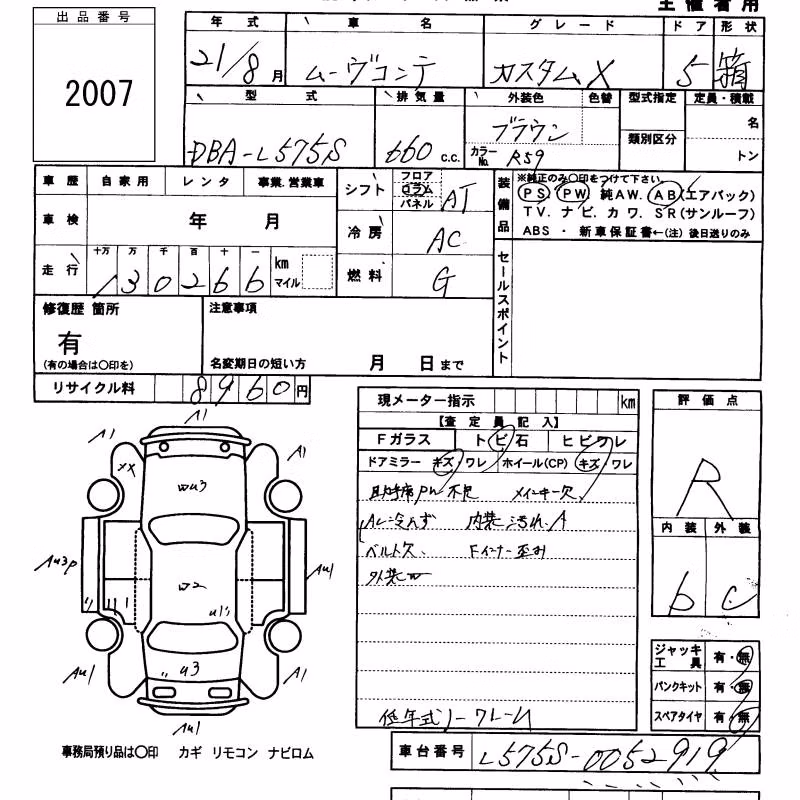 主催者用
出品番号
2007
年式 車名 グレード ドア 形状
21/8月 ムーヴコンテ カスタムX 5 箱
型式 排気量 外装色 色替 型式指定 定員・積載
DBA-L575S 660 c.c. ブラウン カラーNo. R59 類別区分 名 トン
車歴 自家用 レンタ 事業.営業車
車検 年 月
走行 十万 万 千 百 十 一
130266 km マイル
シフト フロア コラム パネル AT
冷房 AC
燃料 G
装備品 ※純正のみ〇印をつけて下さい。
PS PW 純AW. AB(エアバック)
TV. ナビ. カワ. SR(サンルーフ)
ABS ・ 新車保証書←(注) 後日送りのみ
セールスポイント
修復歴 箇所
有
(有の場合は〇印を)
注意事項
名変期日の短い方 月 日まで
リサイクル料 8960円
現メーター指示 km
【査定員記入】
Fガラス トビ石 ヒビワレ
ドアミラー キズ ワレ ホイール(CP) キズ ワレ
助手席PW不良 メインキー欠
AC冷えず 内装汚れ.A
ベルト欠、 Fインナー歪み
外装W
低年式ノークレーム
評価点
R
内装 外装
b C
ジャッキ工具 有・無
パンクキット 有・無
スペアタイヤ 有・無
A1
A1 A1
XX
WU3
AU3P W2 AU1
U1
AU1 U3 A1
AU1
事務局預り品は〇印 カギ リモコン ナビロム
車台番号 L575S-0052919